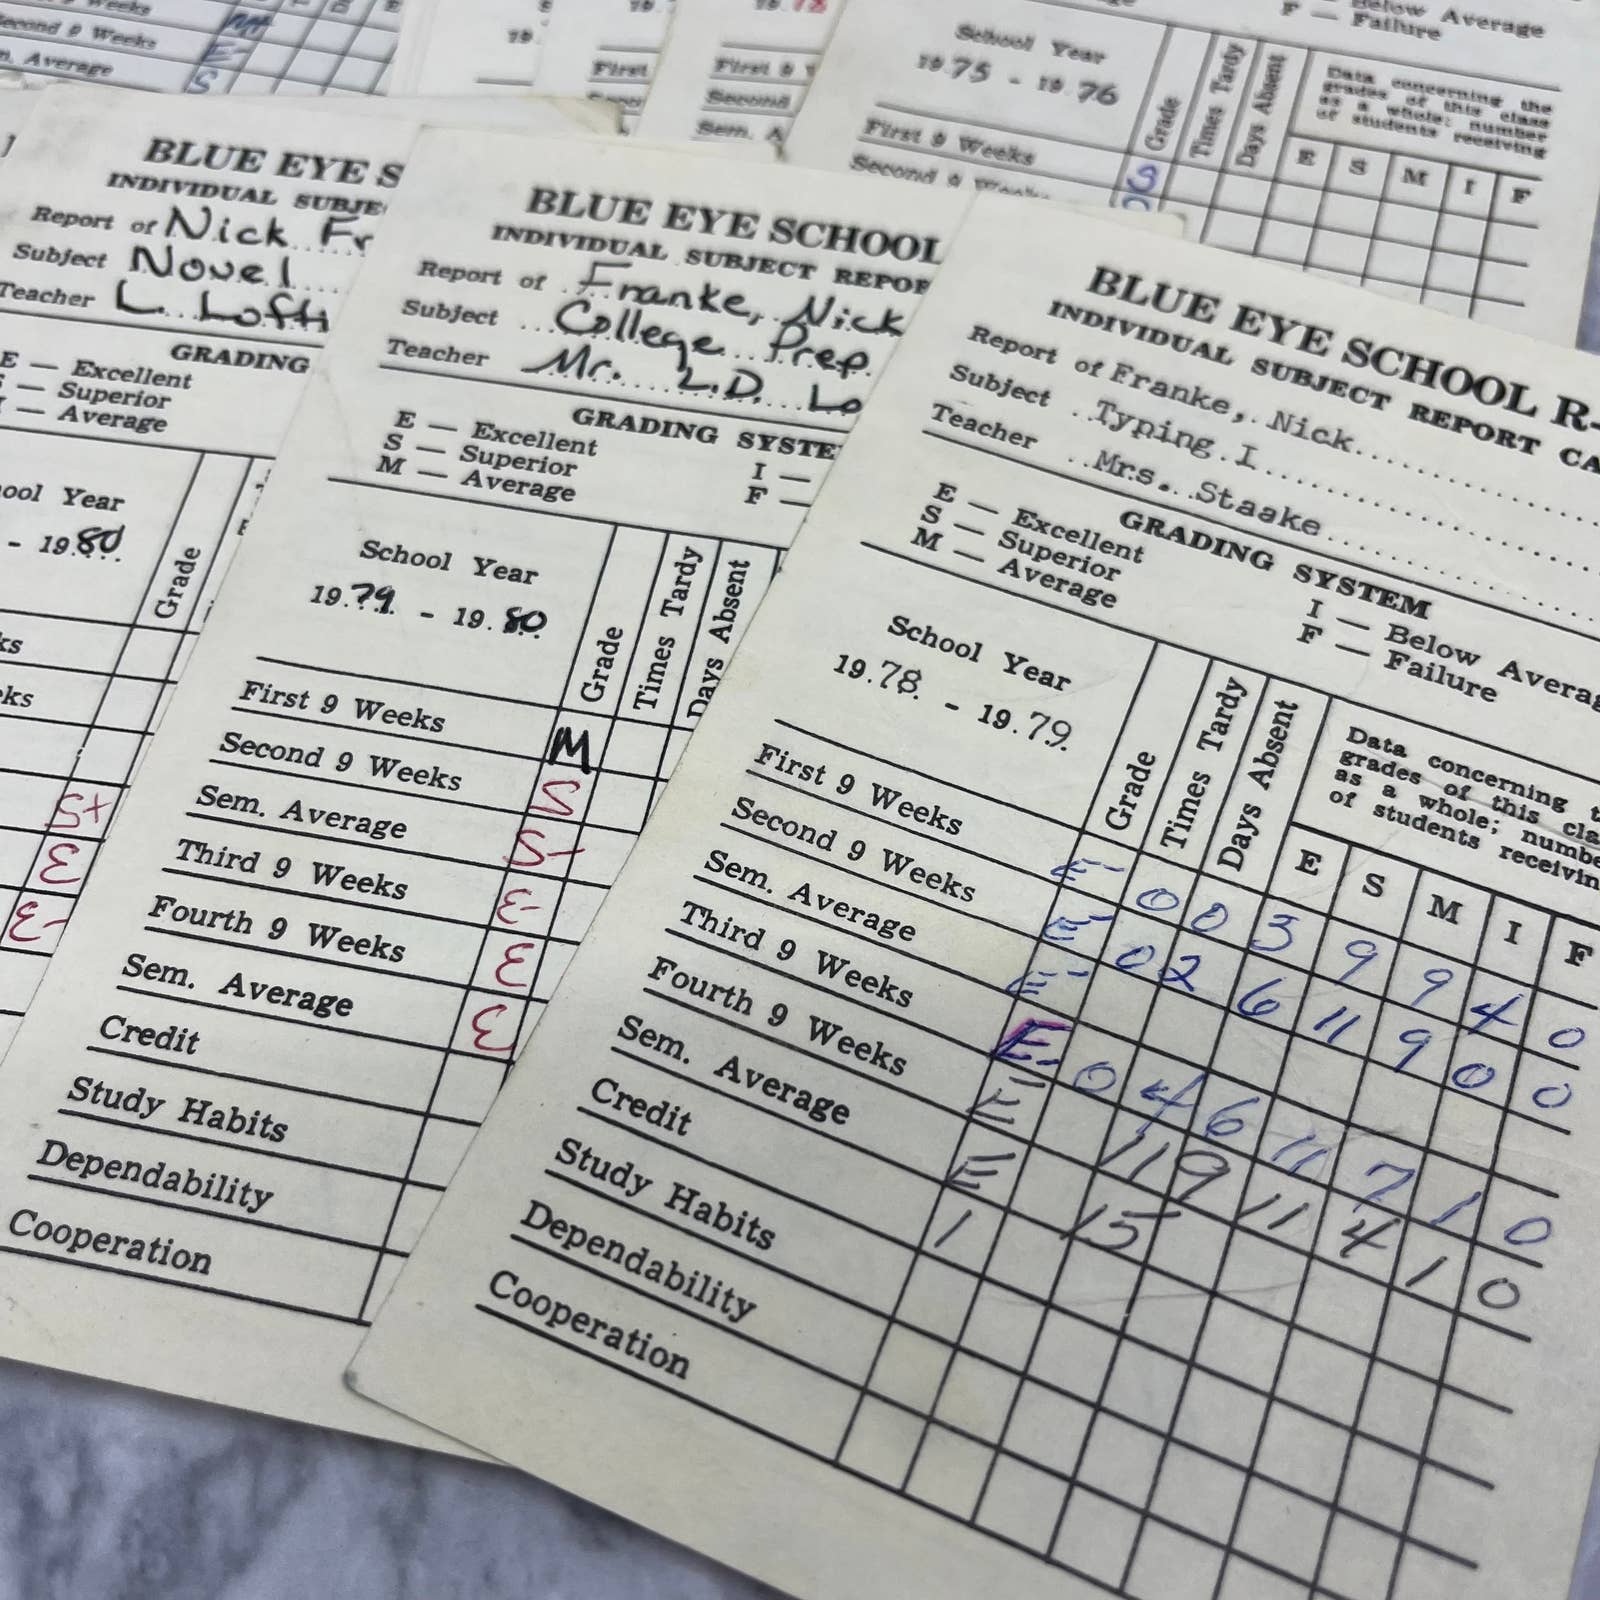 Second 9 Weeks
Average
S
First
First 9
Second
Sem. A
Below Average
F — Failure
School Year
19.75 - 19.76
Grade
Times Tardy
Days Absent
Data concerning the
grades of this class
as a whole; number
of students receiving
E S M I F
First 9 Weeks S
Second 9 Weeks
BLUE EYE S
INDIVIDUAL SUBJE
Report of Nick Fr
Subject Novel
Teacher L. Lofti
GRADING
E — Excellent
— Superior
— Average
ool Year
- 19.80
Grade
ks
ks
S+
E
E-
BLUE EYE SCHOOL
INDIVIDUAL SUBJECT REPOR
Report of Franke, Nick
Subject College Prep.
Teacher Mr. L.D. Lo
GRADING SYSTE
E — Excellent
S — Superior
M — Average
I —
F —
School Year
19.79. - 19.80.
Grade
Times Tardy
Days Absent
First 9 Weeks M
Second 9 Weeks S
Sem. Average S-
Third 9 Weeks E-
Fourth 9 Weeks E
Sem. Average E
Credit
Study Habits
Dependability
Cooperation
BLUE EYE SCHOOL R-
INDIVIDUAL SUBJECT REPORT CA
Report of Franke, Nick
Subject Typing I
Teacher Mrs. Staake
GRADING SYSTEM
E — Excellent
S — Superior
M — Average
I — Below Averag
F — Failure
School Year
19.78. - 19.79.
Grade
Times Tardy
Days Absent
Data concerning t
grades of this cla
as a whole; numbe
of students receivin
E S M I F
First 9 Weeks E- 0 0 3 9 9 4 0
Second 9 Weeks E- 0 2 6 11 9 0 0
Sem. Average E-
Third 9 Weeks E- 0 4 6 11 7 1 0
Fourth 9 Weeks E 11 9 11 4 1 0
Sem. Average E 15
Credit 1
Study Habits
Dependability
Cooperation